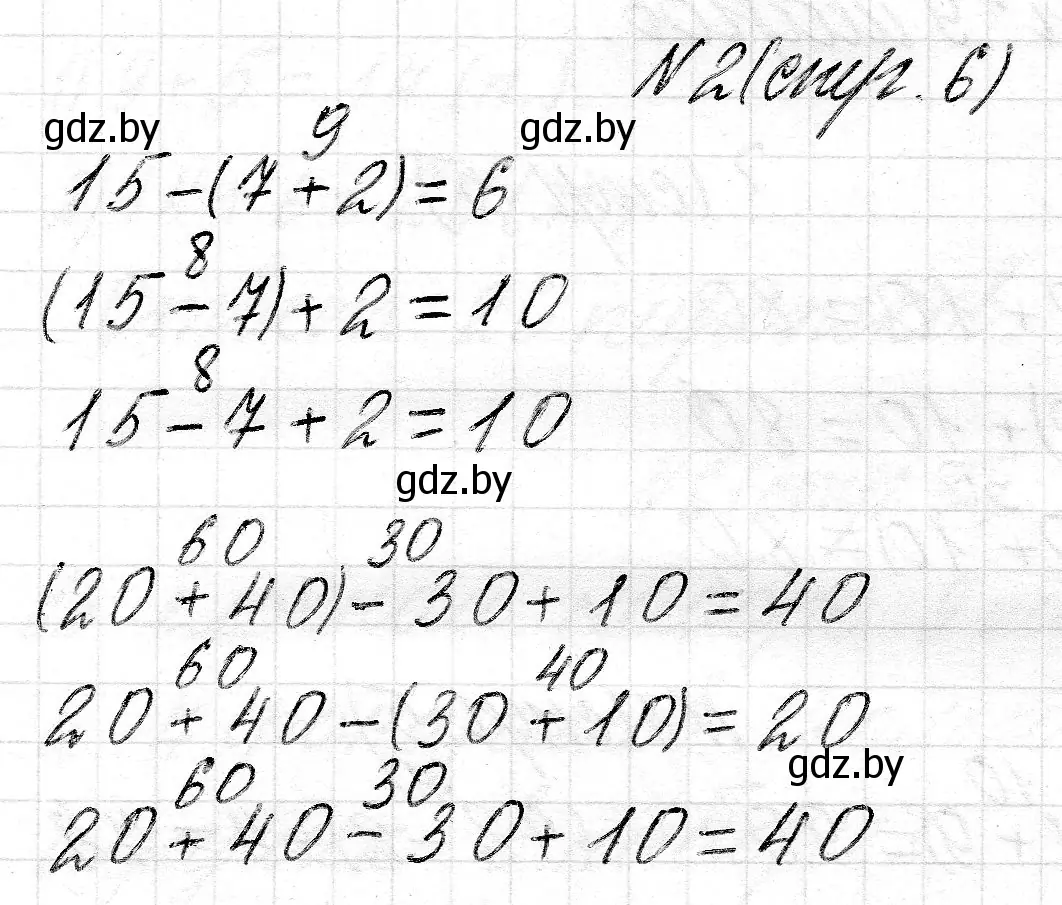 N2(стр. 6)
gdz.by gdz.by
9
15-(7+2)=6
8
(15-7)+2=10
8
15-7+2=10
gdz.by
60 30
(20+40)-30+10=40
60 40
20+40-(30+10)=20
gdz.by
60 30
20+40-30+10=40